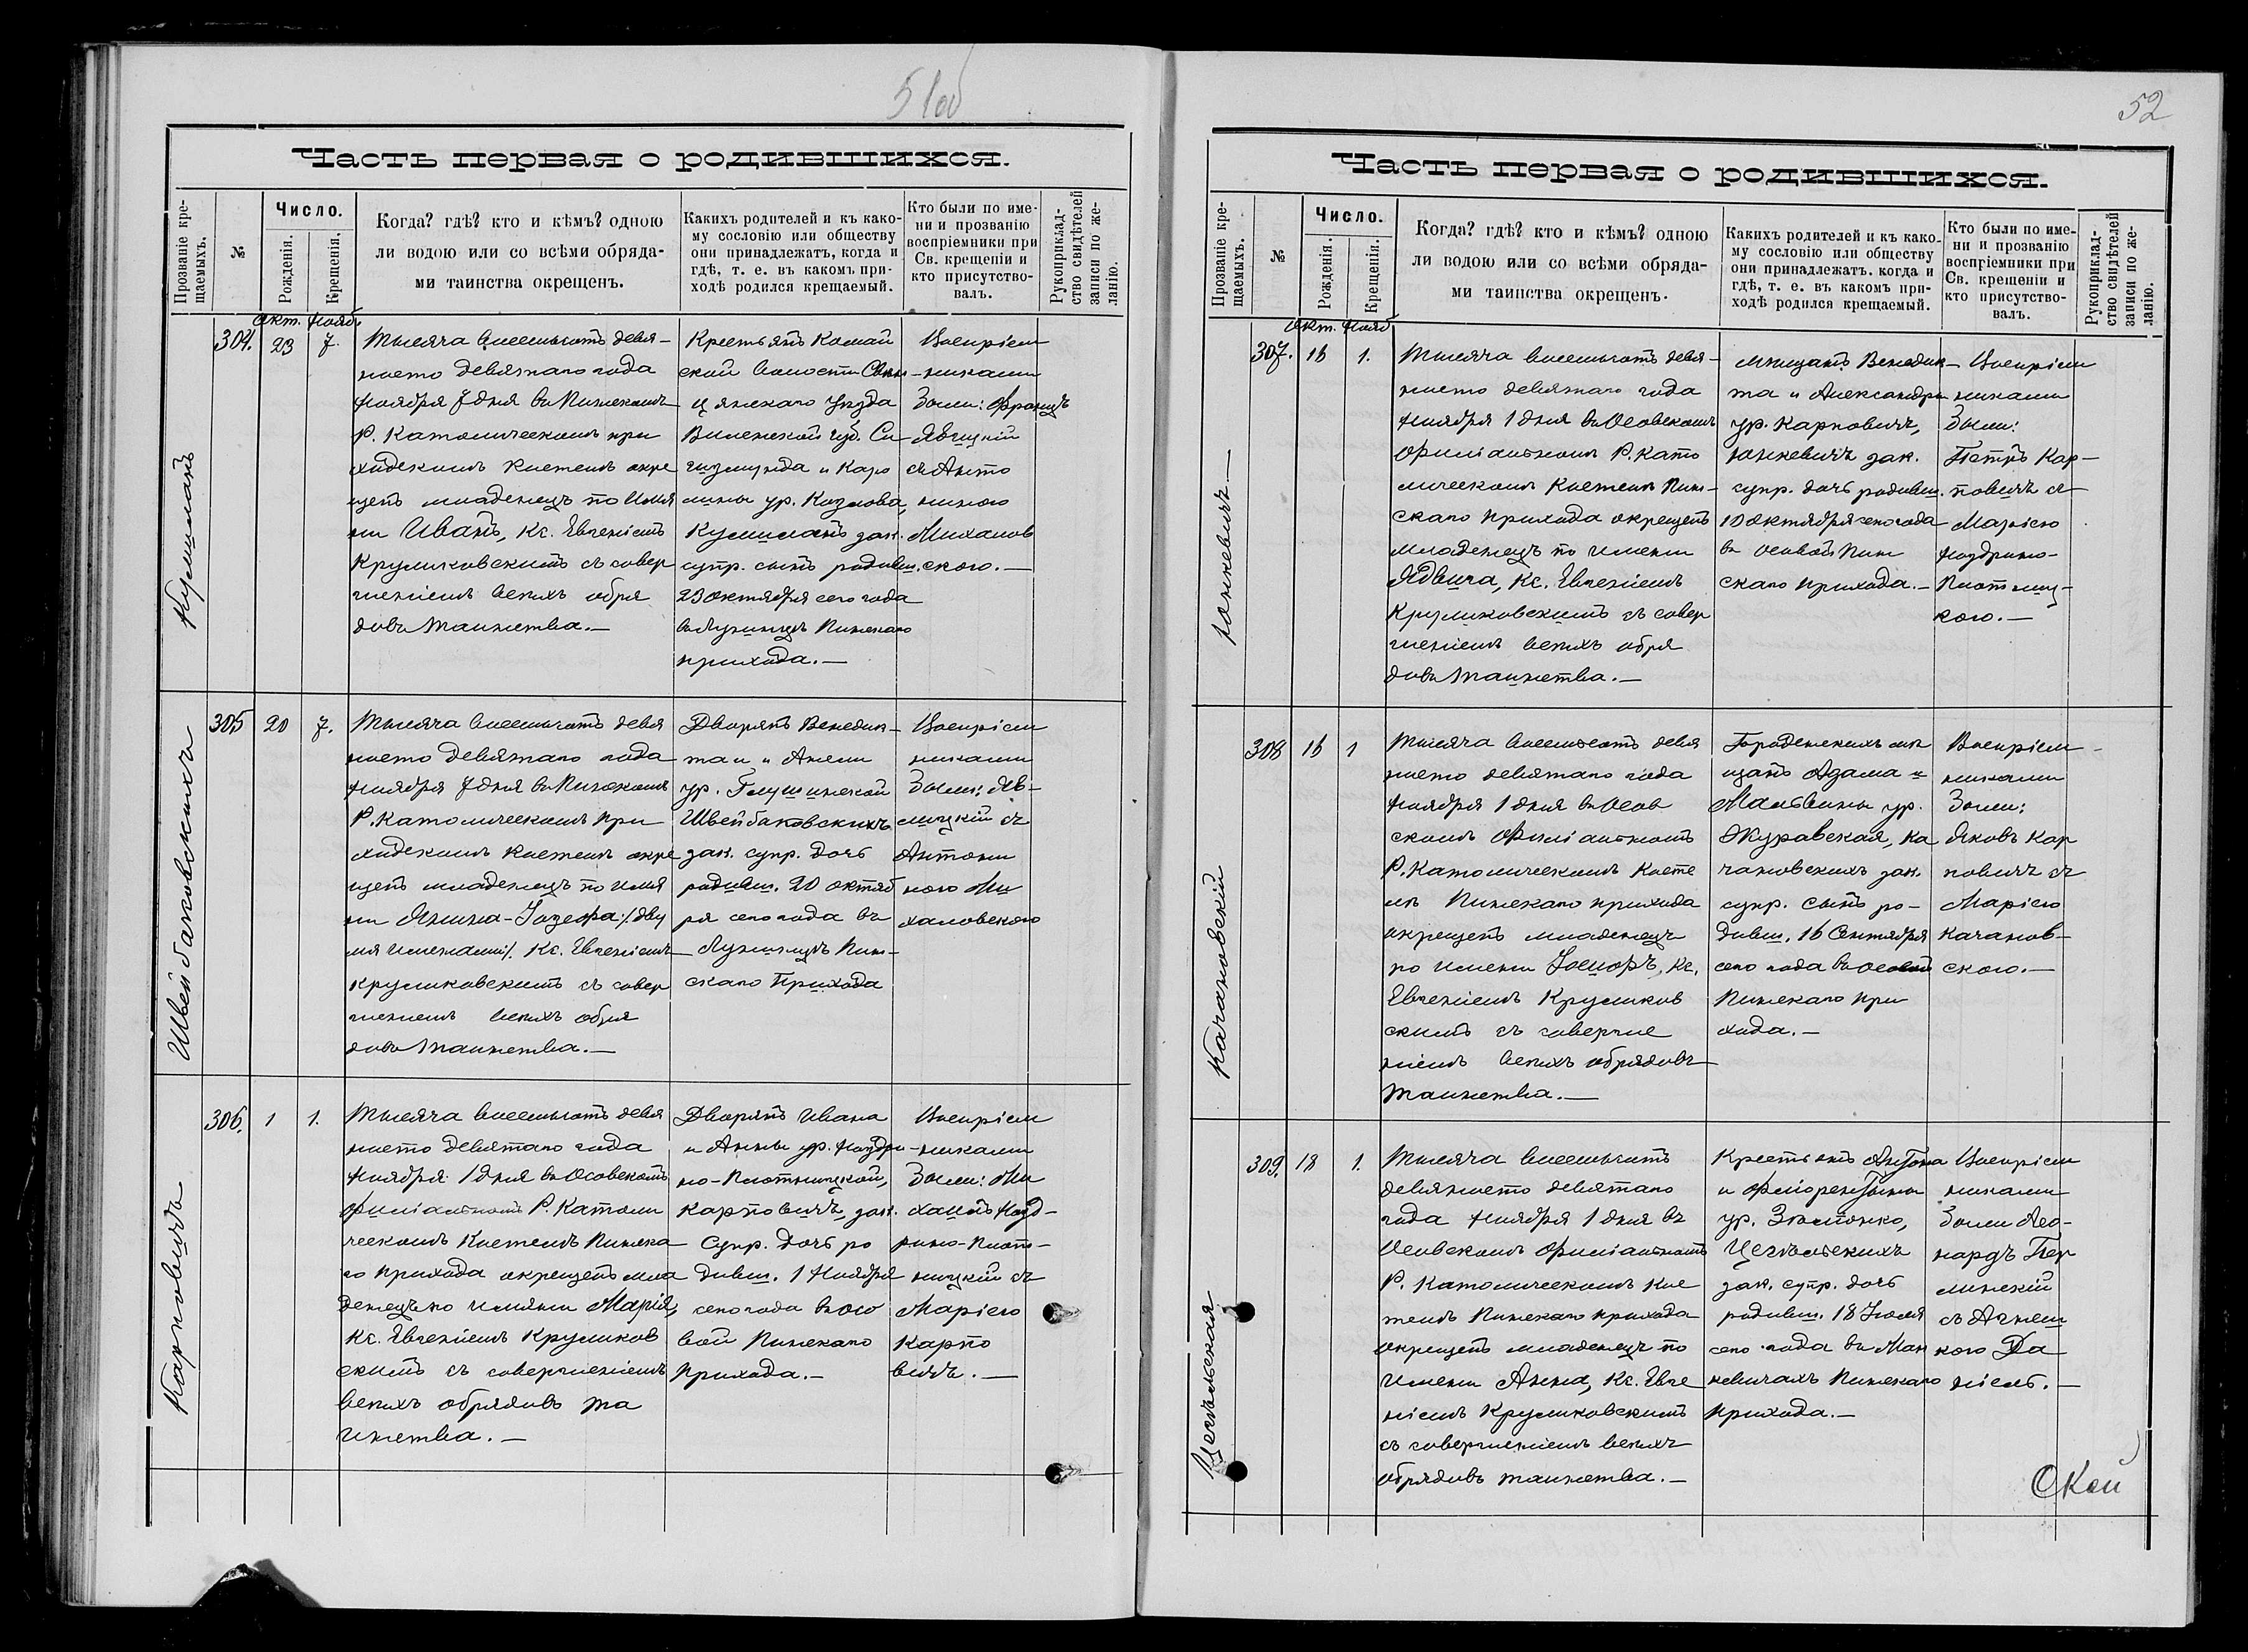 51об
Часть первая о родившихся.
Прозваніе кре-
щаемыхъ.
№
Число.
Рожденія.
Крещенія.
Когда? гдѣ? кто и кѣмъ? одною
ли водою или со всѣми обряда-
ми таинства окрещенъ.
Какихъ родителей и къ како-
му сословію или обществу
они принадлежатъ, когда и
гдѣ, т. е. въ какомъ при-
ходѣ родился крещаемый.
Кто были по име-
ни и прозванію
воспріемники при
Св. крещеніи и
кто присутство-
валъ.
Рукоприклад-
ство свидѣтелей
записи по же-
ланію.
Окт. Нояб.
304. 23 7.
Тысяча восемьсотъ девя-
носто девятаго года
Ноября 7 дня въ Пинскомъ
Р. Католическомъ при
ходскомъ костелѣ окре
щенъ младенецъ по имя
ни Иванъ, Кс. Евгеніемъ
Крумковскимъ съ совер
шеніемъ всѣхъ обря
довъ таинства.—
Крестьянъ Комай
ской волости Свен-
цянскаго уѣзда
Виленской губ. Си
гизмунда и Каро
лины ур. Козлова,
Кушлянъ зак.
супр. сынъ родивш.
23 октября сего года
въ Лунинцѣ Пинскаго
прихода.—
Воспріем
никами
были: Францъ
Явгицкій
съ Анто
ниною
Михалов
ского.—
305 20 7.
Тысяча восемьсотъ девя
носто девятаго года
Ноября 7 дня въ Пинскомъ
Р. Католическомъ при
ходскомъ костелѣ окре
щенъ младенецъ по имя
ни Янина-Іозефа ⁒ дву
мя именами ⁒ Кс. Евгеніемъ
Крумковскимъ съ совер
шеніемъ всѣхъ обря
довъ таинства.—
Дворянъ Венедик-
та и Анели
ур. Глушинской
Швейбаковскихъ
зак. супр. дочь
родивш. 20 октяб
ря сего года въ
Лунинцѣ Пин-
скаго Прихода
Воспріем
никами
были: Яв-
гицкій съ
Антони
ною Ми
халовского
Швейбаковскихъ
306. 1 1.
Тысяча восемьсотъ девя
носто девятаго года
Ноября 1 дня въ Осовскомъ
Филіальномъ Р. Католи
ческомъ костелѣ Пинска
го прихода окрещенъ мла
денецъ по имяни Марія,
Кс. Евгеніемъ Крумков
скимъ съ совершеніемъ
всѣхъ обрядовъ та
инства.—
Дворянъ Ивана
и Анны ур. Ноздри-
но-Плотницкой,
Карповичъ, зак.
супр. дочь ро
дивш. 1 Ноября
сего года въ Осо
вой Пинскаго
прихода.—
Воспріем
никами
были: Ми
хаилъ Нозд-
рино-Плот-
ницкій съ
Маріею
Карпо
вичъ.—
Карповичъ
52
Часть первая о родившихся.
Прозваніе кре-
щаемыхъ.
№
Число.
Рожденія.
Крещенія.
Когда? гдѣ? кто и кѣмъ? одною
ли водою или со всѣми обряда-
ми таинства окрещенъ.
Какихъ родителей и къ како-
му сословію или обществу
они принадлежатъ. когда и
гдѣ, т. е. въ какомъ при-
ходѣ родился крещаемый.
Кто были по име-
ни и прозванію
воспріемники при
Св. крещеніи и
кто присутство-
валъ.
Рукоприклад-
ство свидѣтелей
записи по же-
ланію.
Окт. Нояб
307. 16 1.
Тысяча восемьсотъ девя-
носто девятаго года
Ноября 1 дня въ Осовскомъ
Филіальномъ Р. Като
лическомъ костелѣ Пин-
скаго прихода окрещенъ
младенецъ по имени
Ядвига, Кс. Евгеніемъ
Крумковскимъ съ совер
шеніемъ всѣхъ обря
довъ таинства.—
Мѣщанъ Венедик-
та и Александры
ур. Карповичъ,
Юнкевичъ зак.
супр. дочь родивш.
10 октября сего года
въ Осовой Пин
скаго прихода.—
Воспріем
никами
были:
Петръ Кар-
повичъ съ
Маріею
Ноздрино-
Плотниц-
кого.—
Юнкевичъ—
308 16 1
Тысяча восемьсотъ девя
носто девятаго года
Ноября 1 дня въ Осов
скомъ Филіальномъ
Р. Католическомъ косте
лѣ Пинскаго прихода
окрещенъ младенецъ
по имени Іосифъ, Кс.
Евгеніемъ Крумков
скимъ съ соверше
ніемъ всѣхъ обрядовъ
таинства.—
Городенскихъ мѣ
щанъ Адама и
Мальвины ур.
Журавская, Ка
чановскихъ зак.
супр. сынъ ро-
дивш. 16 Сентября
сего года въ Осовой
Пинскаго при
хода.—
Воспріем-
никами
были:
Яковъ Кар
повичъ съ
Маріею
Качанов-
ского.—
Качановскій
309. 18 1.
Тысяча восемьсотъ
девяносто девятаго
года Ноября 1 дня въ
Осовскомъ Филіальномъ
Р. Католическомъ кос
телѣ Пинскаго прихода
окрещенъ младенецъ по
имени Анна, Кс. Евге
ніемъ Крумковскимъ
съ совершеніемъ всѣхъ
обрядовъ таинства.—
Крестьянъ Антона
и Флорентины
ур. Зѣлонко,
Цегѣльскихъ
зак. супр. дочь
родивш. 18 Іюля
сего года въ Мань
кевичахъ Пинскаго
прихода.—
Воспріем
никами
были Лео-
нардъ Пер
линскій
съ Агнеш
кою Да
ніель.—
Цегѣльская